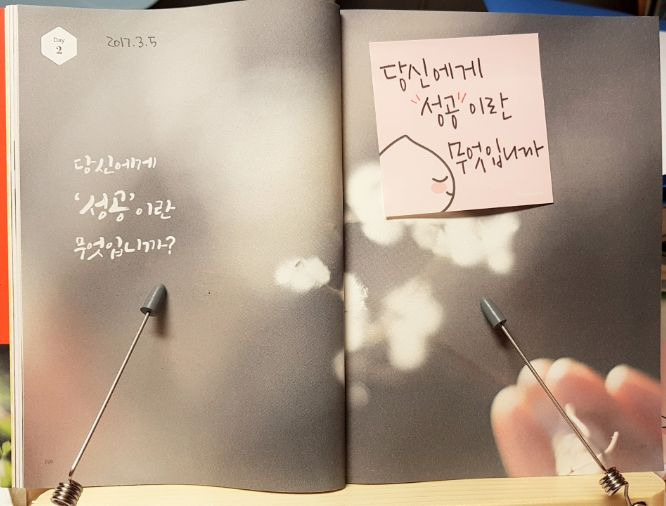 Day
2
2017.3.5
당신에게
'성공'이란
무엇입니까?
당신에게
"성공"이란
무엇입니까